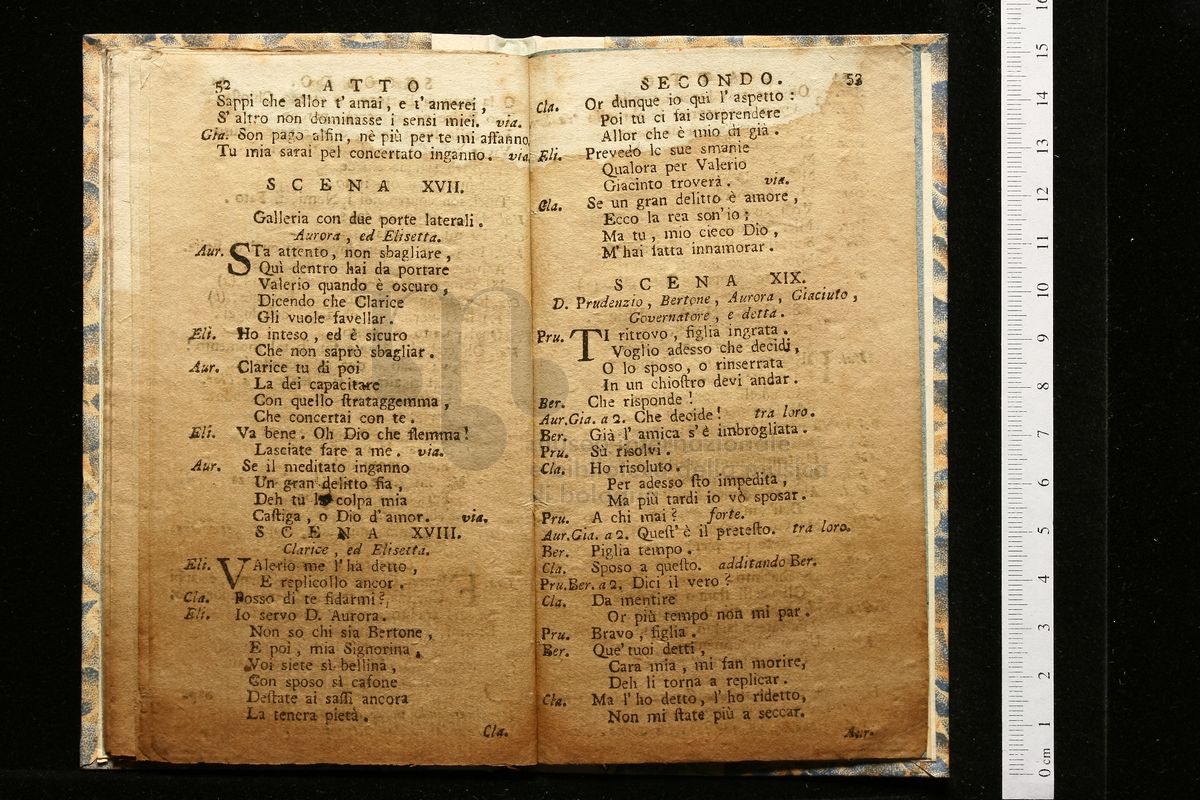 52 ATTO
Sappi che allor t' amai, e t' amerei,
S' altro non dominasse i sensi miei. via.
Gia. Son pago alfin, nè più per te mi affanno,
Tu mia sarai pel concertato inganno. via.
SCENA XVII.
Galleria con due porte laterali.
Aurora, ed Elisetta.
Aur. STa attento, non sbagliare,
Quì dentro hai da portare
Valerio quando è oscuro,
Dicendo che Clarice
Gli vuole favellar.
Eli. Ho inteso, ed è sicuro
Che non saprò sbagliar.
Aur. Clarice tu di poi
La dei capacitare
Con quello ſtrataggemma,
Che concertai con te.
Eli. Va bene. Oh Dio che flemma!
Lasciate fare a me. via.
Aur. Se il meditato inganno
Un gran delitto fia,
Deh tu la colpa mia
Caſtiga, o Dio d' amor. via.
SCENA XVIII.
Clarice, ed Elisetta.
Eli. VAlerio me l' ha detto,
E replicollo ancor.
Cla. Posso di te fidarmi?
Eli. Io servo D. Aurora.
Non so chi sia Bertone,
E poi, mia Signorina,
Voi siete sì bellina,
Con sposo sì cafone
Deſtate ai saſſi ancora
La tenera pietà.
Cla.
SECONDO. 53
Cla. Or dunque io qui l' aspetto:
Poi tu ci fai sorprendere
Allor che è mio di già.
Eli. Prevedo le sue smanie
Qualora per Valerio
Giacinto troverà. via.
Cla. Se un gran delitto è amore,
Ecco la rea son' io;
Ma tu, mio cieco Dio,
M' hai fatta innamorar.
SCENA XIX.
D. Prudenzio, Bertone, Aurora, Giacinto,
Governatore, e detta.
Pru. TI ritrovo, figlia ingrata.
Voglio adesso che decidi,
O lo sposo, o rinserrata
In un chioſtro devi andar.
Ber. Che risponde!
Aur.Gia. a 2. Che decide! tra loro.
Ber. Già l' amica s' è imbrogliata.
Pru. Sù risolvi.
Cla. Ho risoluto.
Per adesso ſto impedita,
Ma più tardi io vò sposar.
Pru. A chi mai? forte.
Aur.Gia. a 2. Queſt' è il preteſto. tra loro.
Ber. Piglia tempo.
Cla. Sposo a queſto. additando Ber.
Pru.Ber. a 2. Dici il vero?
Cla. Da mentire
Or più tempo non mi par.
Pru. Bravo, figlia.
Ber. Que' tuoi detti,
Cara mia, mi fan morire,
Deh li torna a replicar.
Cla. Ma l' ho detto, l' ho ridetto,
Non mi ſtate più a seccar.
Aur.
0 cm 1 2 3 4 5 6 7 8 9 10 11 12 13 14 15 16